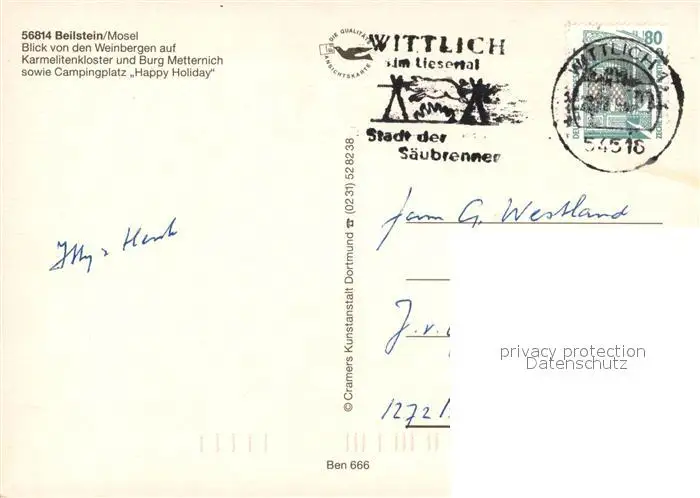 56814 Beilstein/Mosel
Blick von den Weinbergen auf
Karmelitenkloster und Burg Metternich
sowie Campingplatz „Happy Holiday"
DIE QUALITÄTS
ANSICHTSKARTE
WITTLICH
im Liesertal
Stadt der
Säubrenner
80
WITTLICH
54516
© Cramers Kunstanstalt Dortmund ☎ (0231) 528238
G. Westland
J.v.
1272
privacy protection
Datenschutz
Ben 666